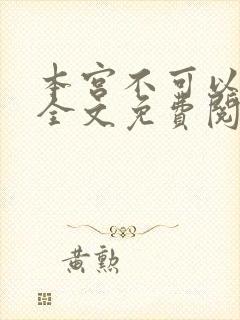 本宫不可以
全文免费阅
黄勲